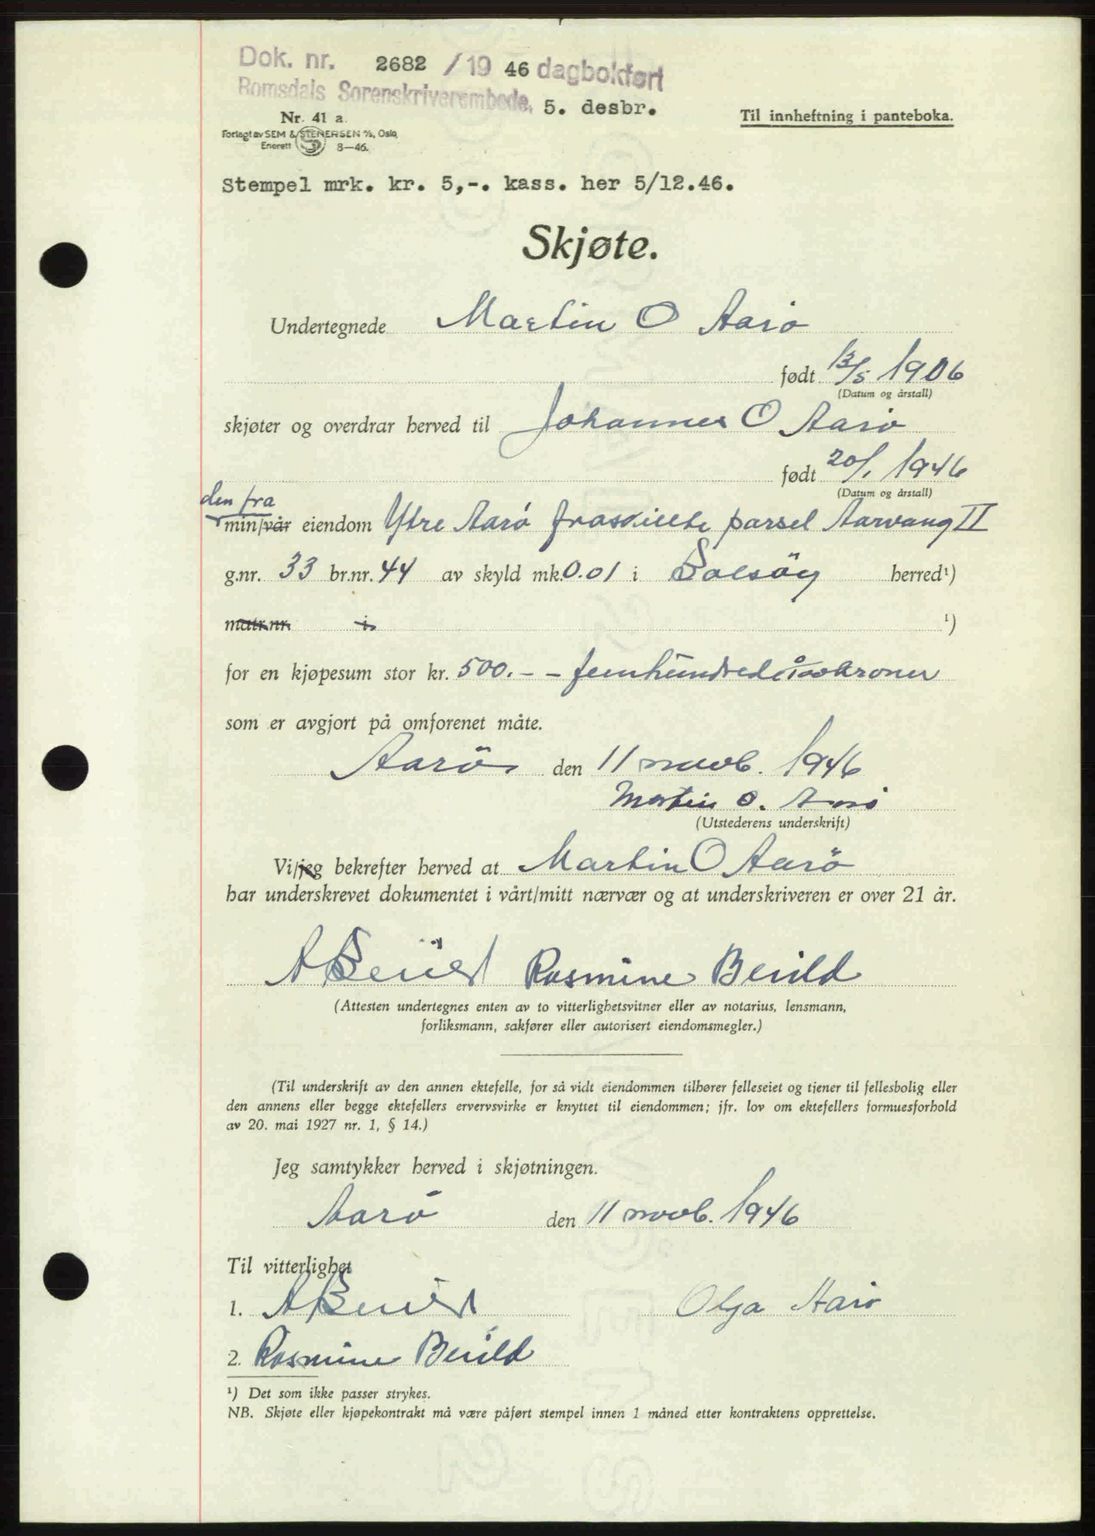 Dok. nr. 2682 / 19 46 dagbokført
Romsdals Sorenskriverembede, 5. desbr.
Nr. 41 a.
Forlagt av SEM & STENERSEN A/S, Oslo
Enerett 8—46.
Til innheftning i panteboka.
Stempel mrk. kr. 5,-. kass. her 5/12.46.
Skjøte.
Undertegnede Martin O Aarø
født 13/5 1906
(Datum og årstall)
skjøter og overdrar herved til Johannes O Aarø
født 20/1 1946
(Datum og årstall)
den fra
min/vår eiendom Ytre Aarø fraskillte parsel Aarvang II
g.nr. 33 br.nr. 44 av skyld mk. 0.01 i Bolsöy herred¹)
matr.nr. i ¹)
for en kjøpesum stor kr. 500.-- femhundrede 0/100 kroner
som er avgjort på omforenet måte.
Aarö den 11 novb. 1946
Martin O. Aarø
(Utstederens underskrift)
Vi/jeg bekrefter herved at Martin O Aarö
har underskrevet dokumentet i vårt/mitt nærvær og at underskriveren er over 21 år.
A Berild Rasmine Berild
(Attesten undertegnes enten av to vitterlighetsvitner eller av notarius, lensmann,
forliksmann, sakfører eller autorisert eiendomsmegler.)
(Til underskrift av den annen ektefelle, for så vidt eiendommen tilhører felleseiet og tjener til fellesbolig eller
den annens eller begge ektefellers ervervsvirke er knyttet til eiendommen; jfr. lov om ektefellers formuesforhold
av 20. mai 1927 nr. 1, § 14.)
Jeg samtykker herved i skjøtningen.
Aarø den 11 novb. 1946
Til vitterlighet
1. A Berild Olga Aarø
2. Rasmine Berild
¹) Det som ikke passer strykes.
NB. Skjøte eller kjøpekontrakt må være påført stempel innen 1 måned etter kontraktens opprettelse.